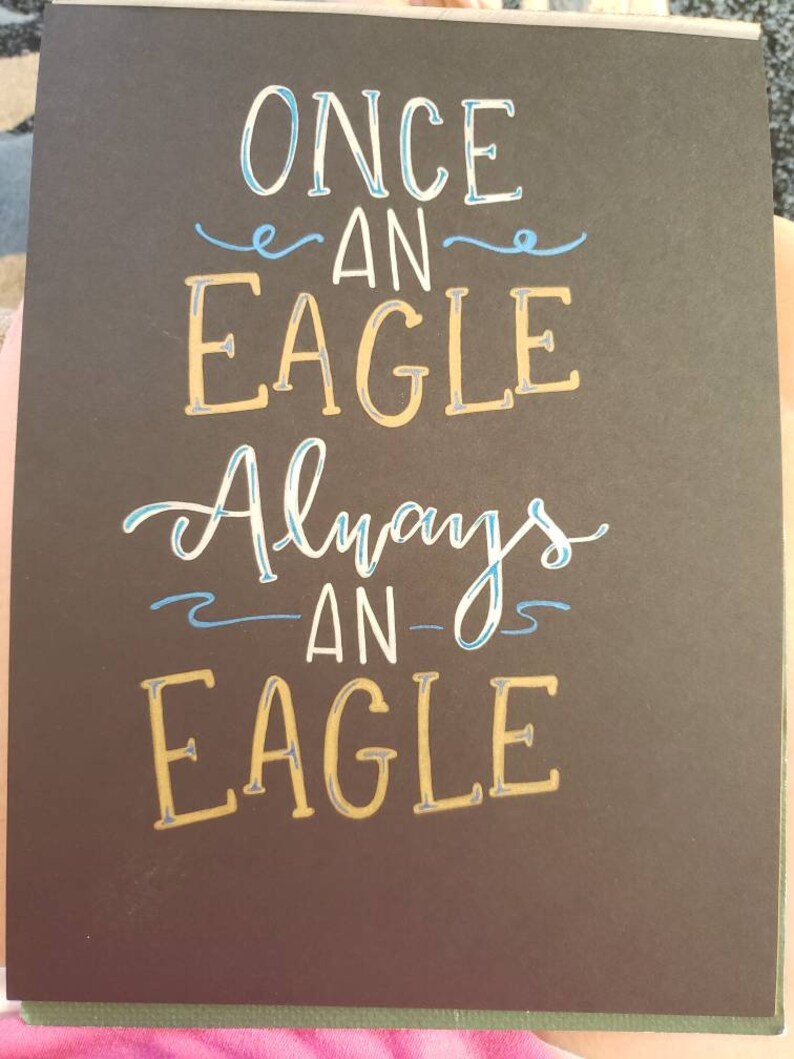 ONCE
AN
EAGLE
Always
AN
EAGLE